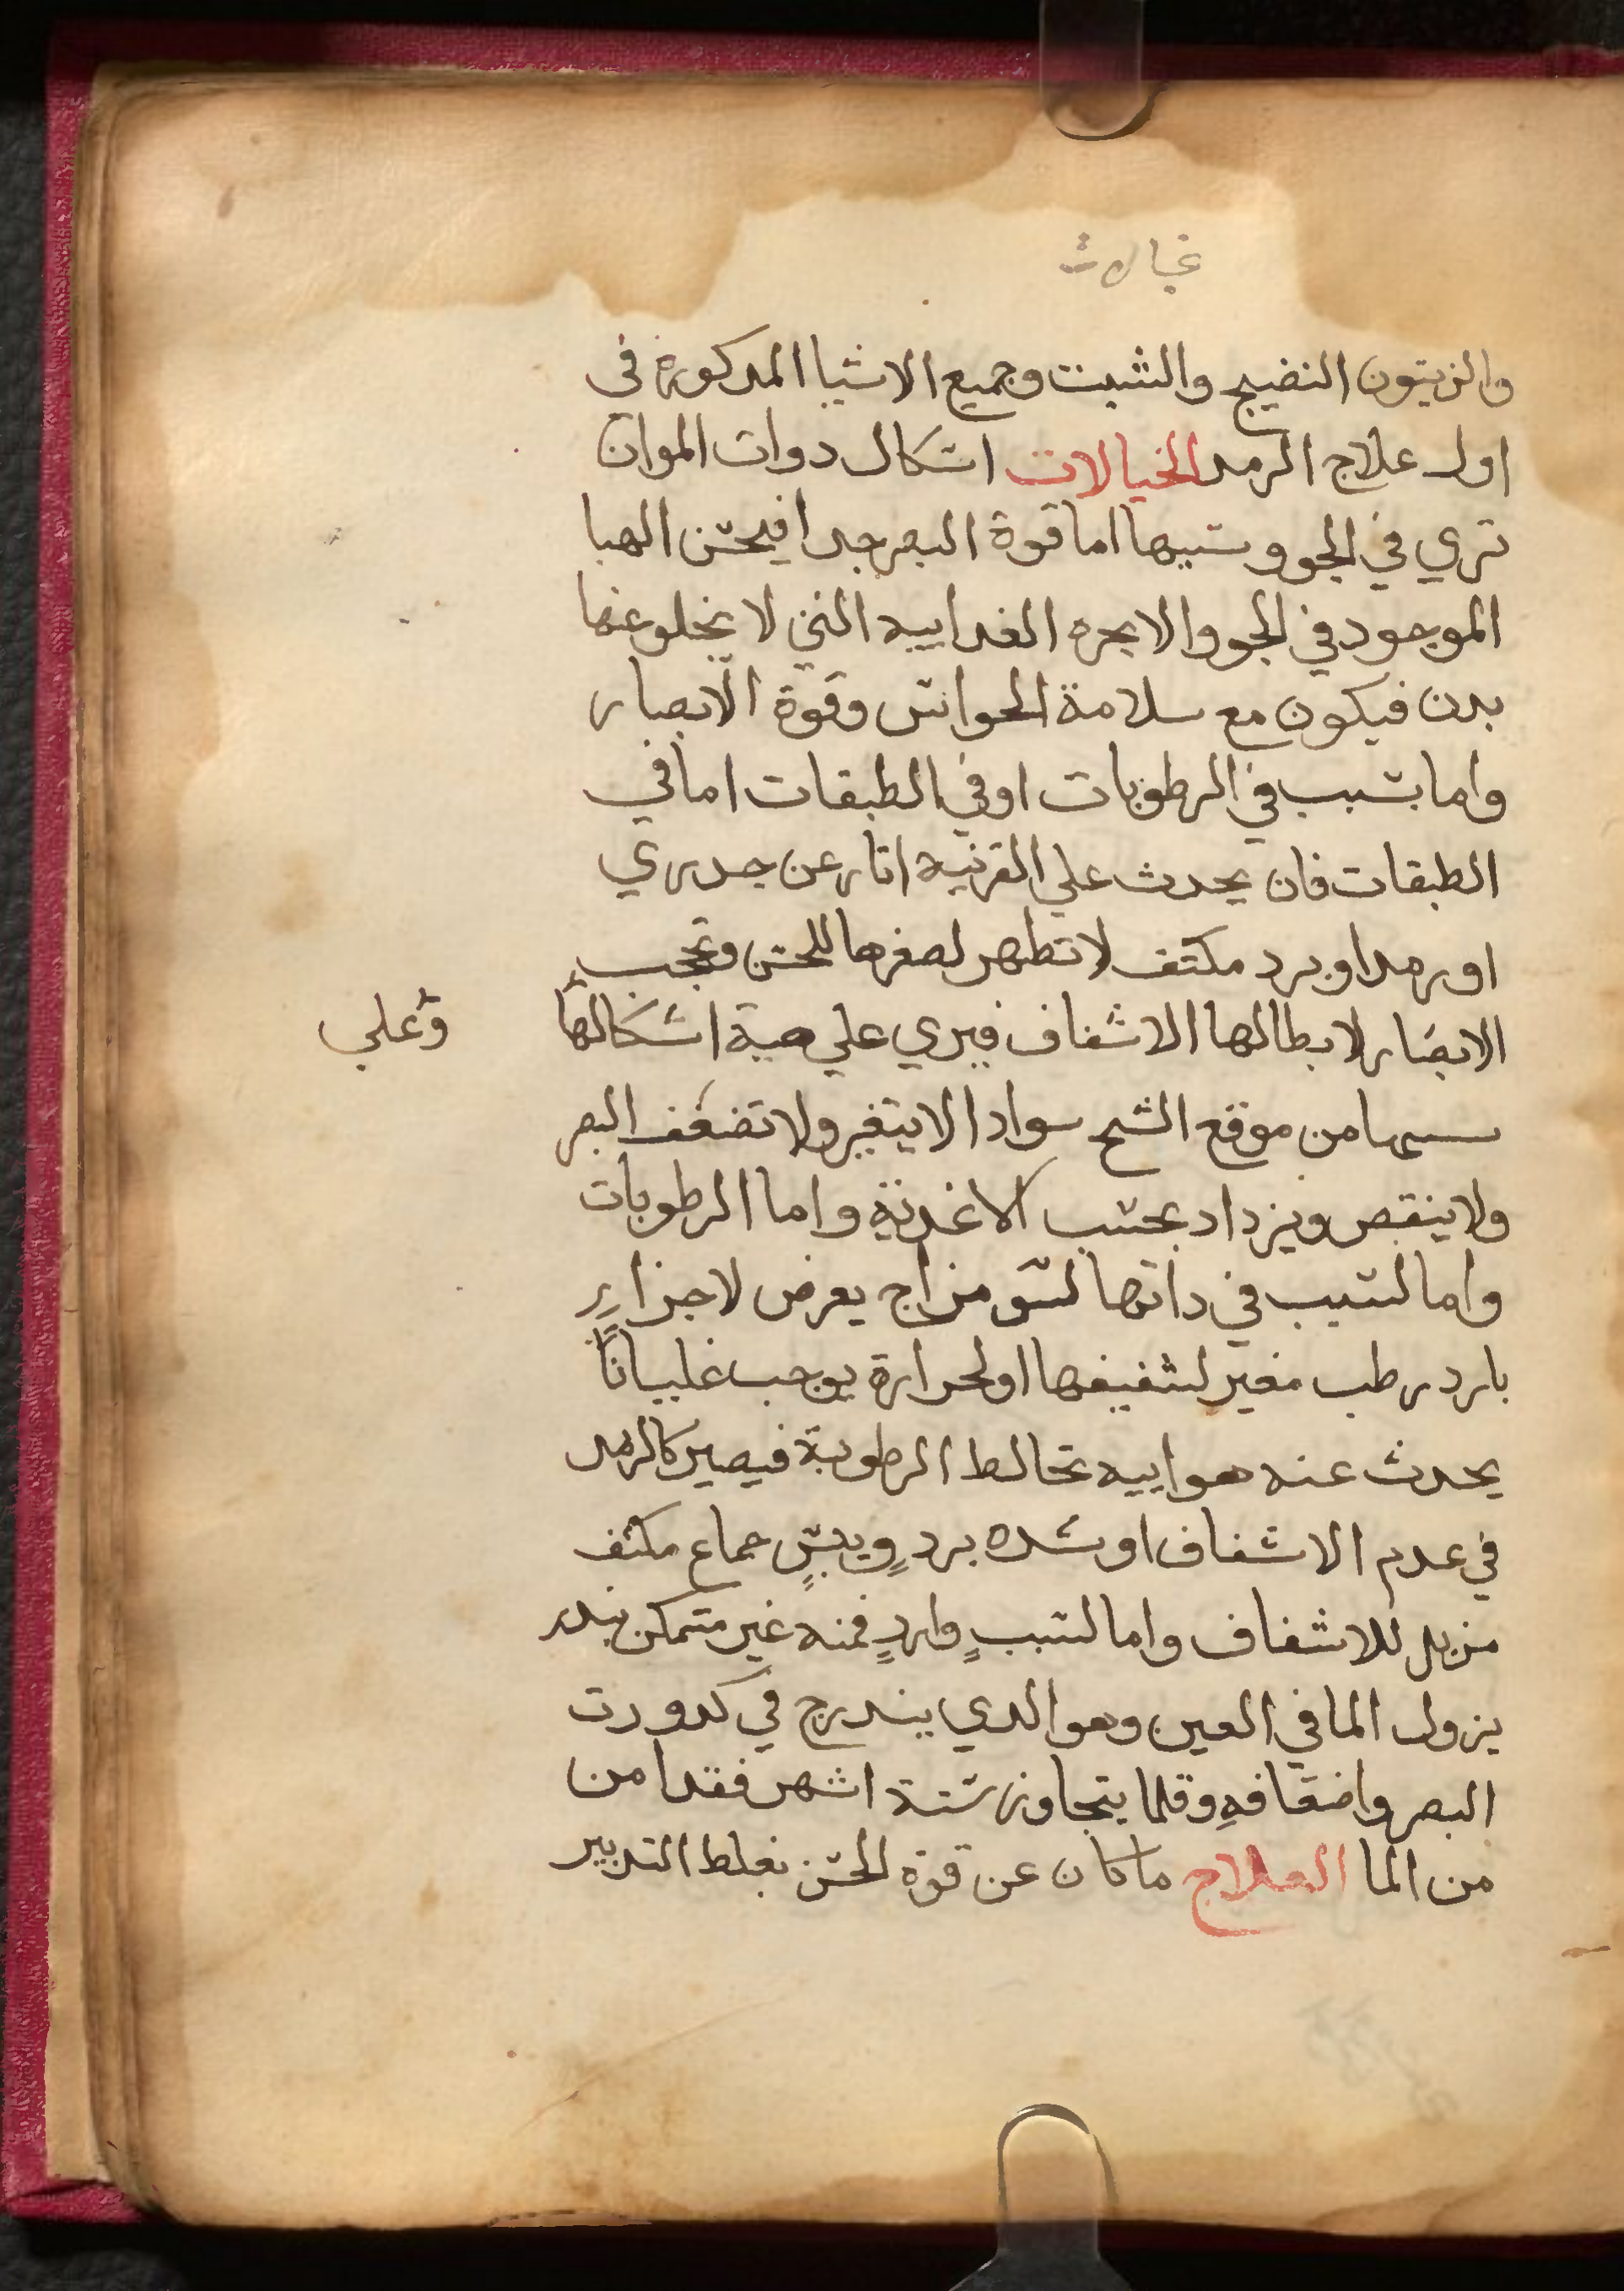 خيالات
والزيتون النضيج والشبت وجميع الاشيا المدكورة في
اول علاج الرمد الخيالات اشكال دوات الموان
تري في الجو وسببها اما قوة البصر جدا فيحس الهبا
الموجود في الجو والابخره الغداييه التي لا يخلو عنها
بدن فيكون مع سلامة الحواس وقوة الابصار
واما بسبب في الرطوبات او في الطبقات اما في
الطبقات فان يحدث علي القرنيه اثار عن جدري
او رمد او برد مكثف لا تظهر لصغرها للحس وتحجب
الابصار لابطالها الاشفاف فيري علي هية اشكالها
وعلي
سمها من موقع الشبح سوادا لا يتغير ولا تضعف البصر
ولا ينقص ويزداد بحسب الاغدية واما الرطوبات
واما لسبب في داتها لسو مزاج يعرض لاجزاءٍ
بارد رطب مغير لشفيفها او لحرارة يوجب غلياناً
يحدث عنه هواييه تخالط الرطوبة فيصير كالزبد
في عدم الاشفاف او شده بردٍ ويبسٍ جماع مكثف
مزيل للاشفاف واما لسببٍ واردٍ فمنه غير متمكن ينذر
بنزول الما في العين وهو الدي يندرج في كدورت
البصر واضعافهِ وقلما يتجاوز ستة اشهر فقد امن
من الما العلاج ما كان عن قوة الحس بغلط التدبير